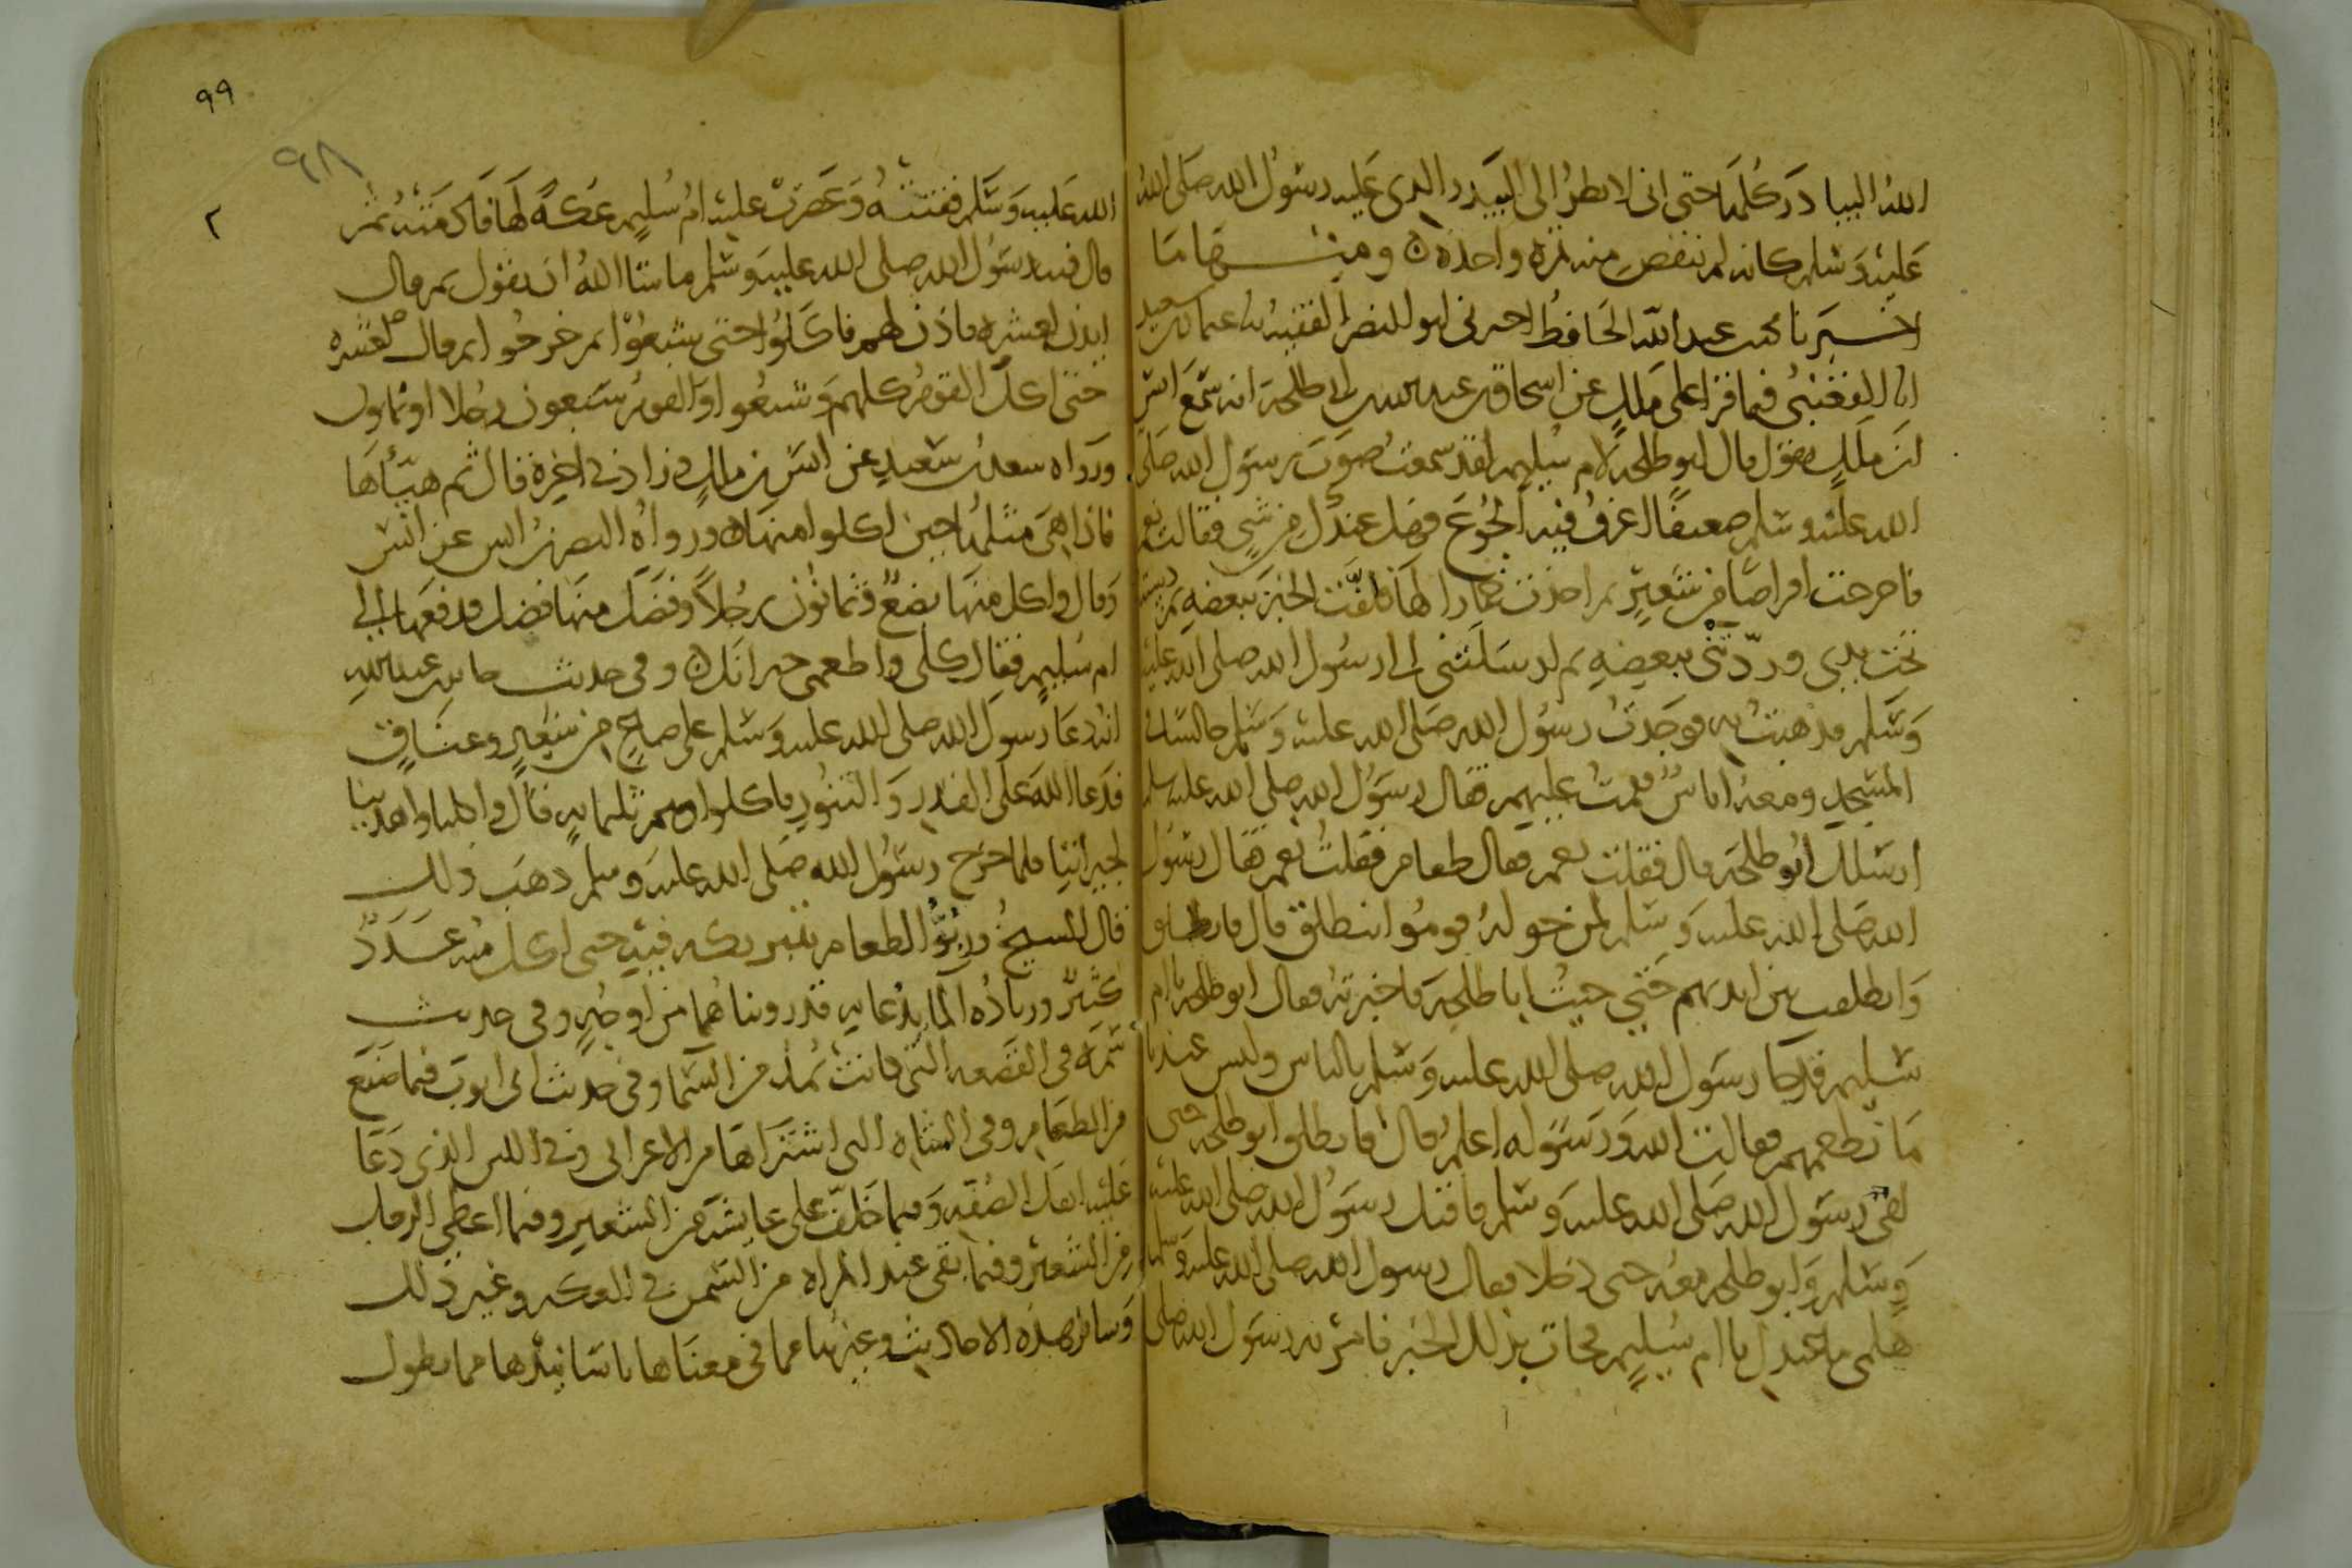 الله البيادر كلها حتى انى لانظر الى البيدر الذى عليه رسول الله صلى الله
عليه وسلم كانه لم ينقص منه تمرة واحدة ومنها ما
اخبرنا ابو عبد الله الحافظ اخبرنى ابو النضر الفقيه ثنا عثمان بن سعيد
ثنا القعنبى فيما قرا على ملك عن اسحاق بن عبد الله بن ابى طلحة انه سمع انس
ابن ملك يقول قال ابو طلحة لام سليم لقد سمعت صوت رسول الله صلى
الله عليه وسلم ضعيفا اعرف فيه الجوع فهل عندك من شى فقالت نعم
فاخرجت اقراصا من شعير ثم اخذت خمارا لها فلفت الخبز ببعضه ثم دسته
تحت يدى وردتنى ببعضه ثم ارسلتنى الى رسول الله صلى الله عليه
وسلم فذهبت به فوجدت رسول الله صلى الله عليه وسلم جالسا فى
المسجد ومعه اناس فقمت عليهم فقال رسول الله صلى الله عليه وسلم
ارسلك ابو طلحة قال فقلت نعم فقال طعام فقلت نعم فقال رسول
الله صلى الله عليه وسلم لمن حوله قوموا انطلق قال فانطلق
وانطلقت بين ايديهم حتى جيت ابا طلحة فاخبرته فقال ابو طلحة يا ام
سليم قد جا رسول الله صلى الله عليه وسلم بالناس وليس عندنا
ما نطعمهم فقالت الله ورسوله اعلم قال فانطلق ابو طلحة حتى
لقى رسول الله صلى الله عليه وسلم فاقبل رسول الله صلى الله عليه
وسلم وابو طلحة معه حتى دخلا فقال رسول الله صلى الله عليه وسلم
هلمى ما عندك يا ام سليم فجات بذلك الخبز فامر به رسول الله صلى
٩٩
٩٨
٢
الله عليه وسلم ففتته وعصرت عليه ام سليم عكة لها فادمته ثم
قال فيه رسول الله صلى الله عليه وسلم ما شا الله ان يقول ثم قال
ايذن لعشرة فاذن لهم فاكلوا حتى شبعوا ثم خرجوا ثم قال لعشرة
حتى اكل القوم كلهم وشبعوا والقوم سبعون رجلا او ثمانون
ورواه سعد بن سعيد عن انس بن ملك وزاد فى اخره قال ثم هياها
فاذا هى مثلها حين اكلوا منها ورواه النضر بن انس عن انس
وقال واكل منها بضع وثمانون رجلا وفضل منها فضل فدفعها الى
ام سليم فقال كلى واطعمى جيرانك وفى حديث جابر بن عبد الله
انه دعا رسول الله صلى الله عليه وسلم على صاع من شعير وعناق
فدعا الله على القدر والتنور فاكلوا وهم ثلثماية قال واكلنا واهدينا
لجيراننا فلما خرج رسول الله صلى الله عليه وسلم ذهب ذلك
قال الشيخ وربو الطعام بتبريكه فيه حتى اكل منه عدد
كثير وزيادة الما بدعايه قد رويناهما من اوجه وفى حديث
سمرة فى القصعة التى كانت تمد من السما وفى حديث ابى ايوب فيما صنع
من الطعام وفى الشاة التى اشتراها من الاعرابى وفى اللبن الذى دعا
عليه اهل الصفة وفيما خلف على عايشة من الشعير وفيما اعطى الرجل
من الشعير وفيما بقى عند المراة من السمن فى العكة وغير ذلك
وساير هذه الاحاديث وغيرها مما فى معناها باسانيدها مما يطول